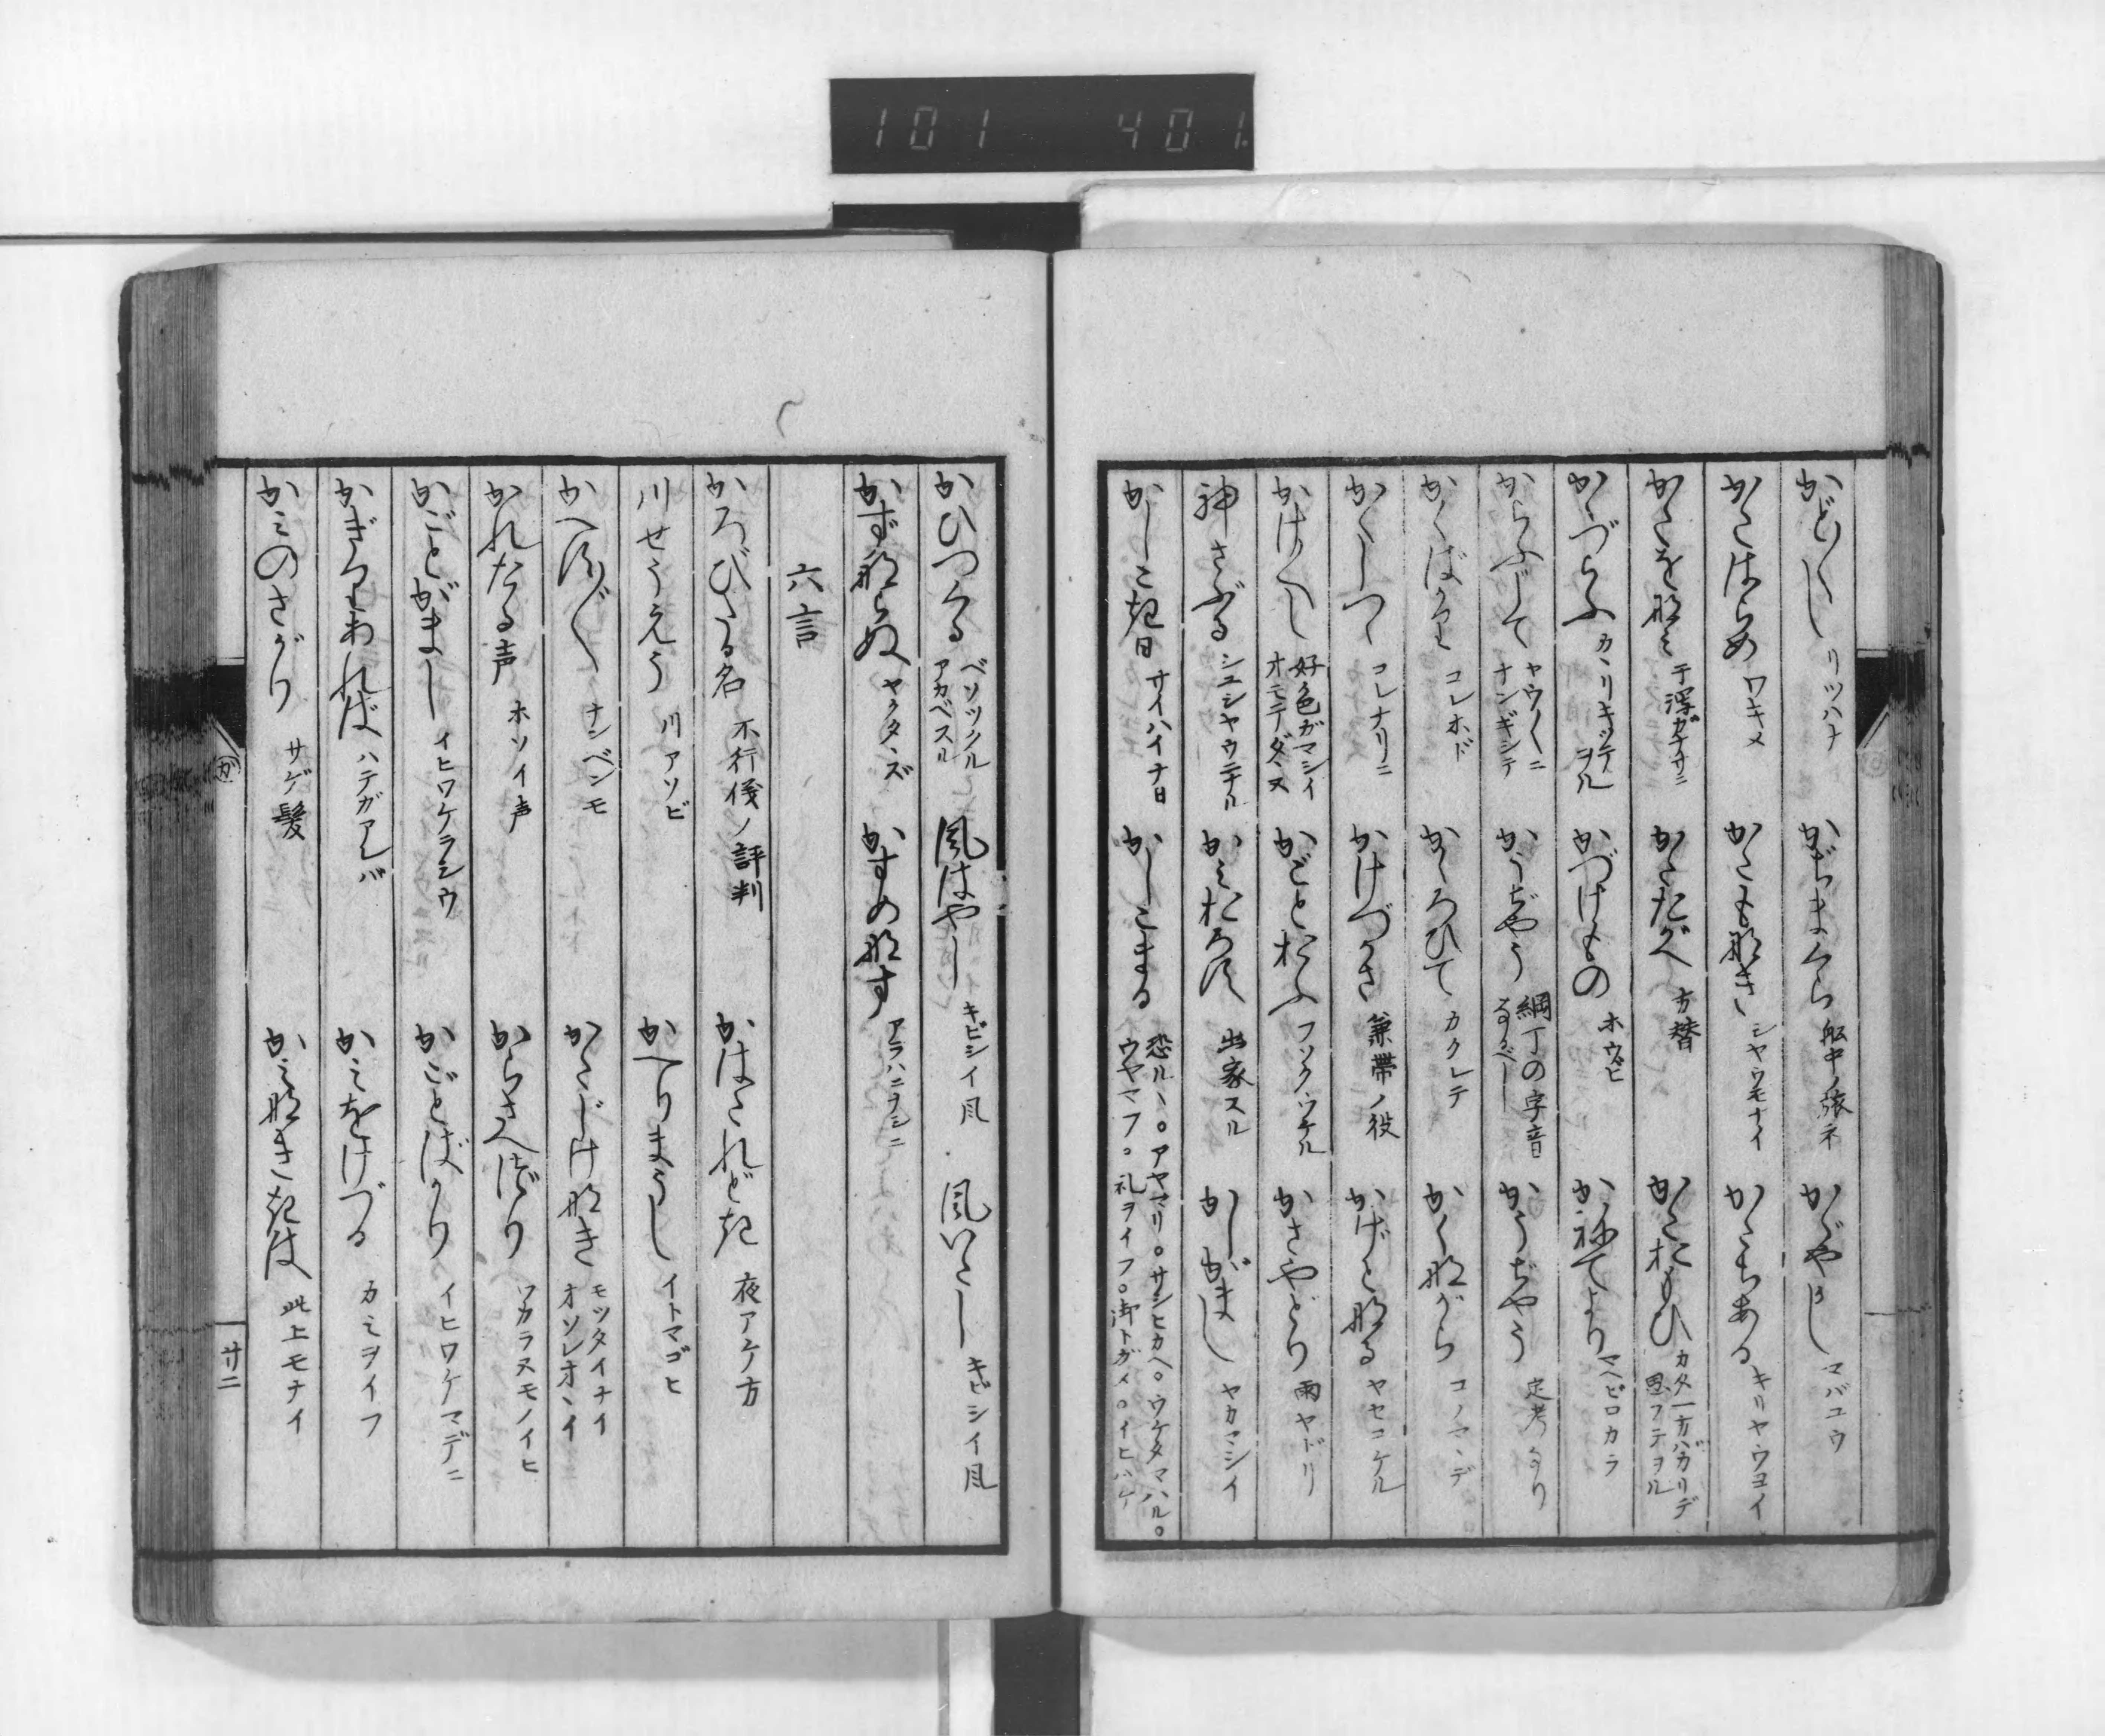 101 401
かど〳〵し リツハナ かぢまくら 船中ノ旅ネ かゞやし マバユウ
かたはらめ ワキメ かたも那き シヤウモナイ かたちある キリヤウヨイ
かたを那ミ 干潟ガナサニ かたたがへ 方替 かたおもひ カタ一方バカリデ思フテヲル
かゝづらふ カヽリキツテヲル かづけもの ホウビ かねてより マヘビロカラ
からふじて ヤウ〳〵ニナンギシテ かうぢやう 綱丁の字音なるべし かうぢやう 定考なり
かくばかり コレホド かくろひて カクレテ かく那がら コノマヽデ
かくしつゝ コレナリニ かけづかさ 兼帯ノ役 かげと那る ヤセコケル
かけ〳〵し 好色ガマシイオモテダヽヌ かごとおふ フソクウケル かさやどり 雨ヤドリ
神さぶる シユシヤウニナル かミおろす 出家スル かしがまし ヤカマシイ
かしこき日 サイハイナ日 かしこまる 恐ルヽ。アヤマリ。サシヒカヘ。ウケタマハル。ウヤマフ。礼ヲイフ。御トガメ。イヒハケ
かひつくる ベソツクルアカベスル 風はやし キビシイ風 風いたし キビシイ風
かず那らぬ ヤクタヽズ かすめ那す アラハニナシニ
六言
かろびたる名 不行儀ノ評判 かはたれどき 夜アケ方
川せうえう 川アソビ かへりまうし イトマゴヒ
かへす〴〵 ナンベンモ かたじけ那き モツタイナイオソレオヽイ
かれたる声 ホソイ声 からさへづり ワカラヌモノイヒ
かごとがまし イヒワケラシウ かごとばかり イヒワケマデニ
かぎりあれば ハテガアレバ かミをけづる カミヲイフ
かミのさがり サゲ髪 かミ那ききは 此上モナイ
か
廿二